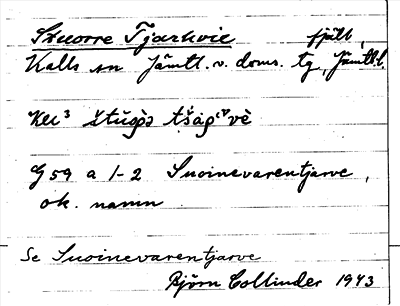 Stuorre Tjarhvie fjäll,
Kalls sn Jämtl. v. doms. tg, Jämtl. l.
štuo̯ə tšåp
G 59 a 1-2 Suoinevarentjarve,
ok. namn
Se Suoinevarentjarve
Björn Collinder 1943